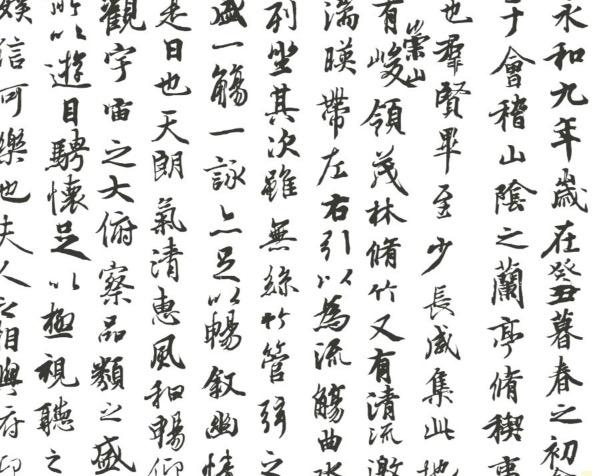 永和九年歲在癸丑暮春之初
于會稽山陰之蘭亭脩稧事
也羣賢畢至少長咸集此地
有崇山峻領茂林脩竹又有清流激
湍暎帶左右引以為流觴曲水
列坐其次雖無絲竹管弦之
盛一觴一詠亦足以暢叙幽情
是日也天朗氣清惠風和暢仰
觀宇宙之大俯察品類之盛
所以遊目騁懷足以極視聽之
娛信可樂也夫人之相與俯仰